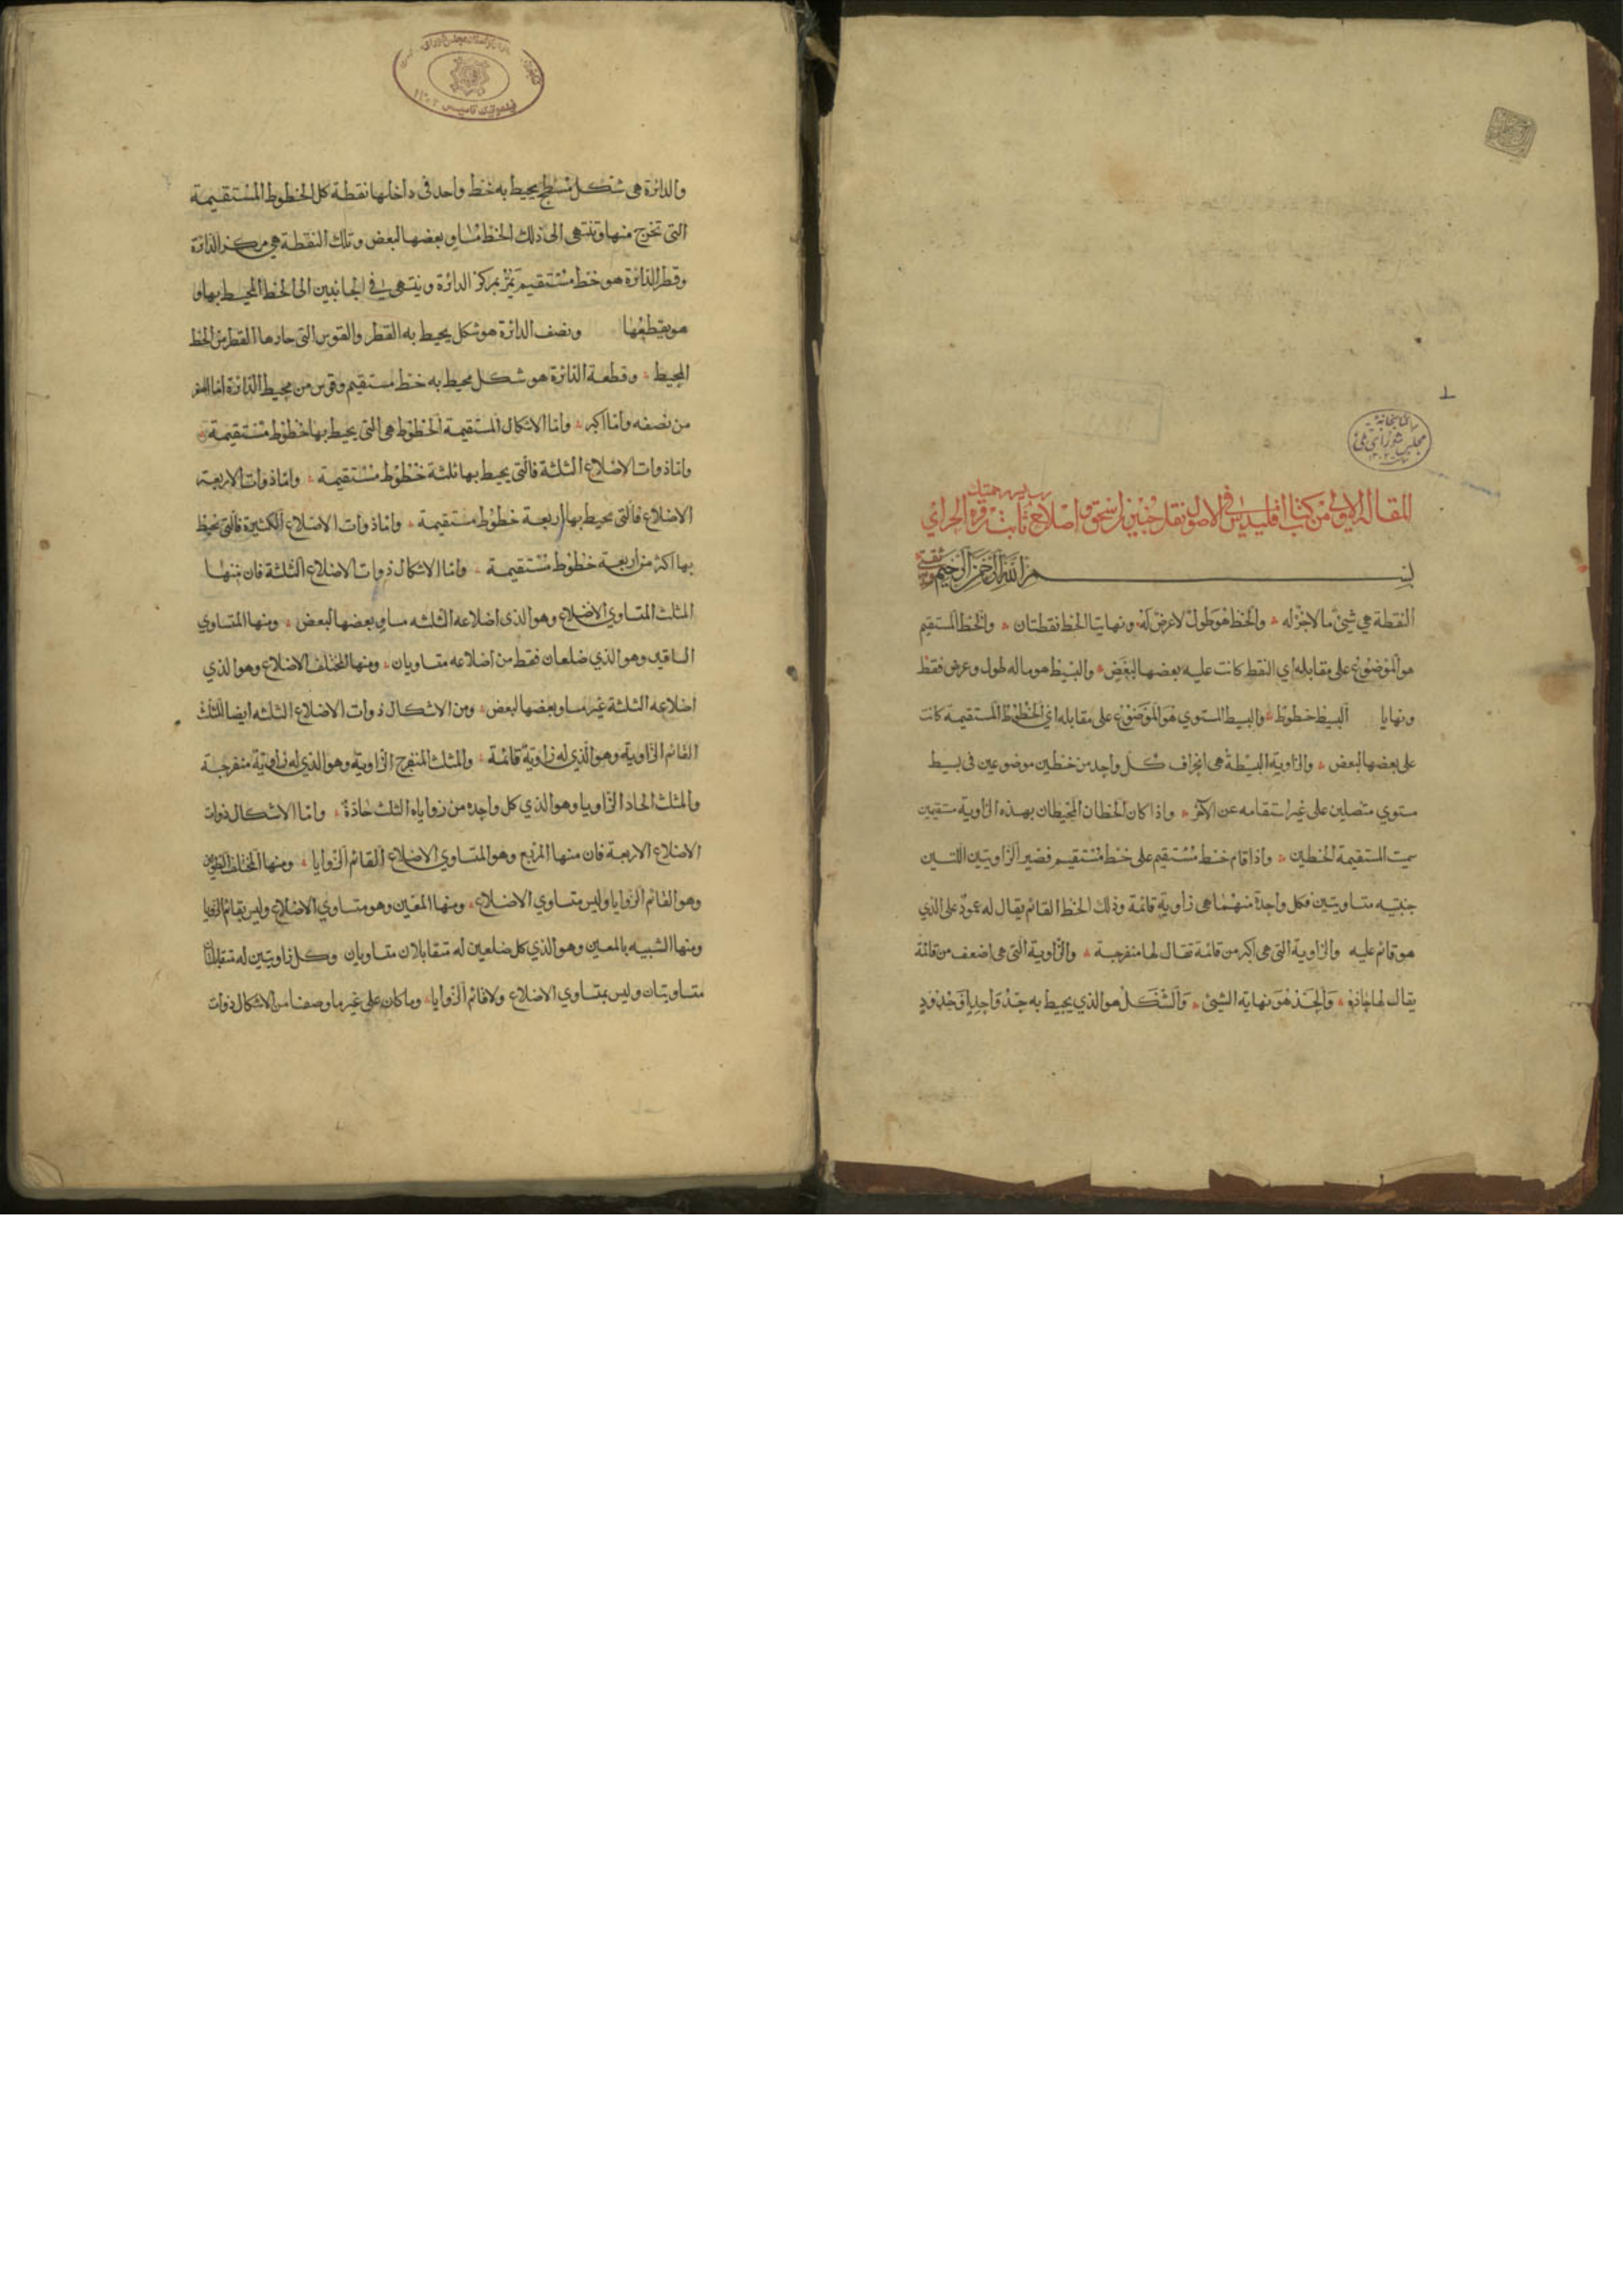 المقالة الاولى من كتاب اقليدس في الاصول نقل حنين بن اسحق واصلاح ثابت بن قرة الحراني
بسم الله الرحمن الرحيم
النقطة هي شئ ما لا جزء له والخط هو طول لا عرض له ونهايتا الخط نقطتان والخط المستقيم
هو الموضوع على مقابلة اي النقط كانت عليه بعضها لبعض والبسيط هو ما له طول وعرض فقط
ونهايا البسيط خطوط والبسيط المستوي هو الموضوع على مقابله اي الخطوط المستقيمة كانت
على بعضها لبعض والزاوية البسيطة هي انحراف كل واحد من خطين موضوعين في بسيط
مستوي متصلين على غير استقامه عن الآخر واذا كان الخطان المحيطان بهذه الزاوية مستقيمين
سميت المستقيمة الخطين واذا قام خط مستقيم على خط مستقيم فصير الزاويتين اللتين
جنبتيه متساويتين فكل واحدة منهما هي زاوية قائمة وذلك الخط القائم يقال له عمود على الذي
هو قائم عليه والزاوية التي هي اكبر من قائمة تقال لها منفرجة والزاوية التي هي اضعف من قائمة
يقال لها حادة والحد هو نهاية الشئ والشكل هو الذي يحيط به حد واحد او حدود
والدائرة هي شكل مسطح يحيط به خط واحد في داخلها نقطة كل الخطوط المستقيمة
التي تخرج منها وتنتهي الى ذلك الخط مساو بعضها لبعض وتلك النقطة هي مركز الدائرة
وقطر الدائرة هو خط مستقيم يمر بمركز الدائرة وينتهي في الجانبين الى الخط المحيط بها و
هو يقطعها ونصف الدائرة هو شكل يحيط به القطر والقوس التي حازها القطر من الخط
المحيط وقطعة الدائرة هو شكل يحيط به خط مستقيم وقوس من محيط الدائرة اما اصغر
من نصفه واما اكبر واما الاشكال المستقيمة الخطوط هي التي يحيط بها خطوط مستقيمة
واما ذوات الاضلاع الثلثة فالتي يحيط بها ثلثة خطوط مستقيمة واما ذوات الاربعة
الاضلاع فالتي يحيط بها اربعة خطوط مستقيمة واما ذوات الاضلاع الكثيرة فالتي يحيط
بها اكثر من اربعة خطوط مستقيمة واما الاشكال ذوات الاضلاع الثلثة فان منها
المثلث المتساوي الاضلاع وهو الذي اضلاعه الثلثه مساو بعضها لبعض ومنها المتساوي
الساقين وهو الذي ضلعان فقط من اضلاعه متساويان ومنها المختلف الاضلاع وهو الذي
اضلاعه الثلثة غير مساو بعضها لبعض ومن الاشكال ذوات الاضلاع الثلثه ايضا المثلث
القائم الزاوية وهو الذي له زاوية قائمة والمثلث المنفرج الزاوية وهو الذي له زاوية منفرجة
والمثلث الحاد الزاويا وهو الذي كل واحدة من زواياه الثلث حادة واما الاشكال ذوات
الاضلاع الاربعة فان منها المربع وهو المتساوي الاضلاع القائم الزوايا ومنها المختلف الطولين
وهو القائم الزوايا وليس متساوي الاضلاع ومنها المعين وهو متساوي الاضلاع وليس بقائم الزوايا
ومنها الشبيه بالمعين وهو الذي كل ضلعين له متقابلان متساويان وكل زاويتين له متقابلتان
متساويتان وليس بمتساوي الاضلاع ولا قائم الزوايا وما كان على غير ما وصفنا من الاشكال ذوات